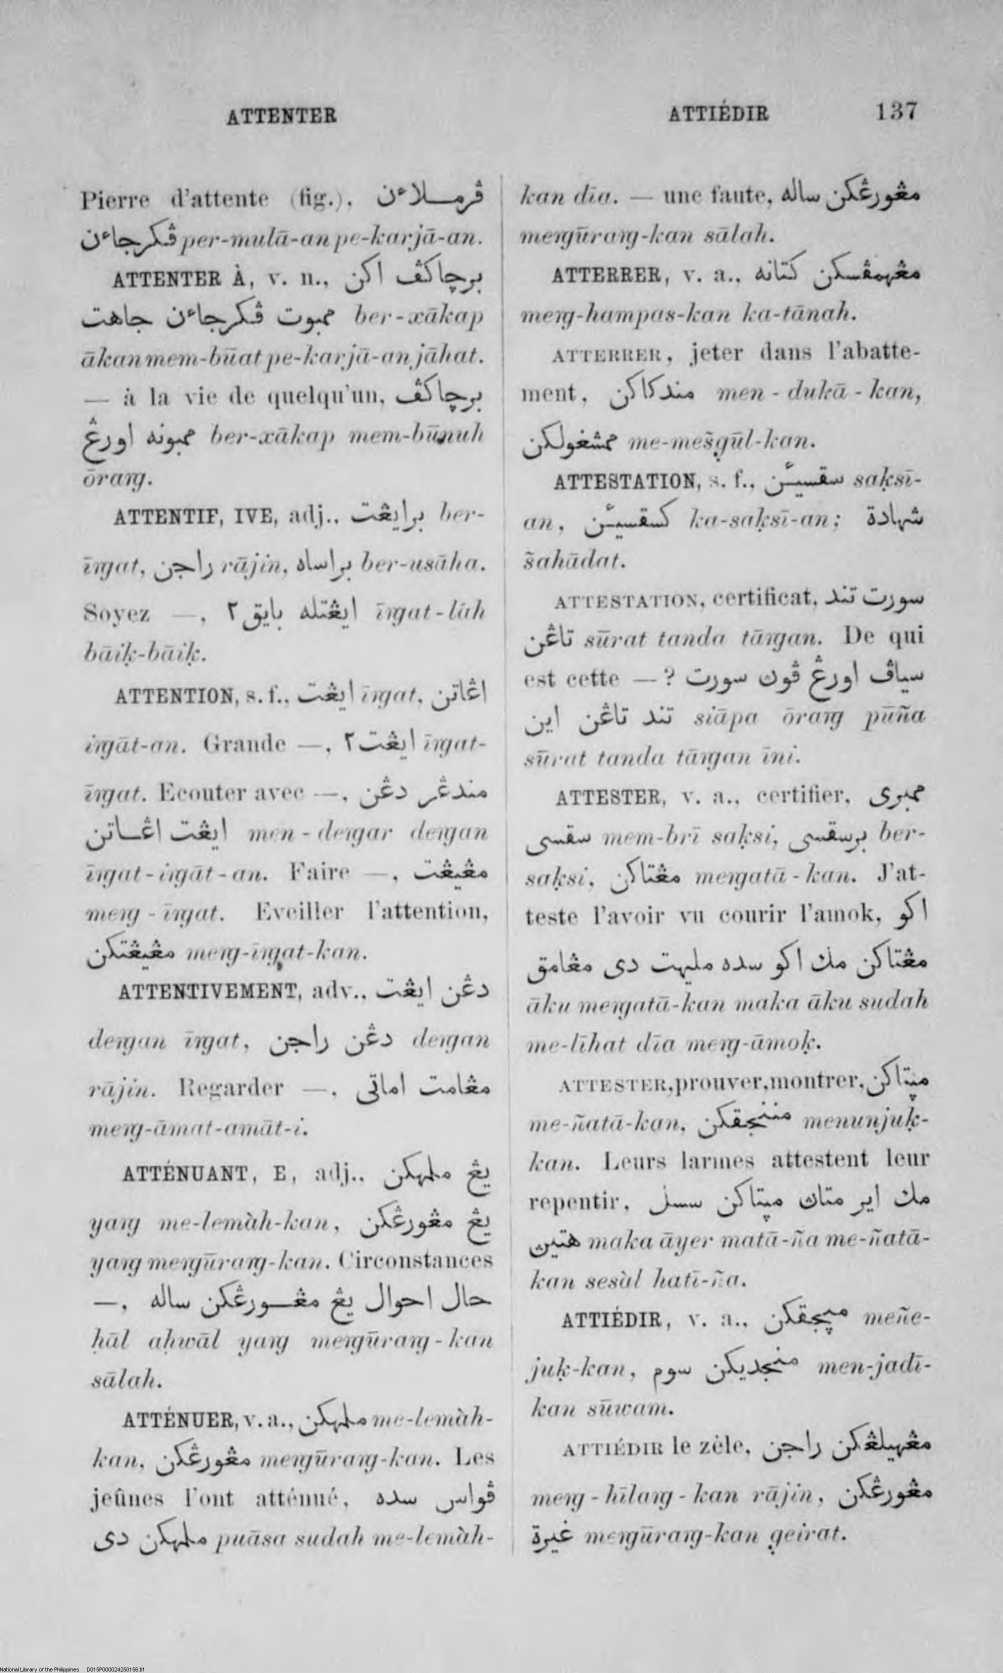 ATTENTER
ATTIÉDIR 137
Pierre d'attente (fig.), ڤرمـــلاءن
ڤكرجاءن per-mulā-an pe-karjā-an.
ATTENTER À, v. n., برچاكڤ اكن
ممبوت ڤكرجاءن جاهت ber-xākap
ākan mem-būat pe-karjā-an jāhat.
— à la vie de quelqu'un, برچاكڤ
ممبونه اورڠ ber-xākap mem-būnuh
ōraıg.
ATTENTIF, IVE, adj., برايڠت ber-
īıgat, راجن rājin, براساه ber-usāha.
Soyez —, ايڠتله بايق٢ īıgat-lāh
bāiḳ-bāiḳ.
ATTENTION, s. f., ايڠت īıgat, اڠاتن
iıgāt-an. Grande —, ايڠت٢ īıgat-
īıgat. Ecouter avec —, مندڠر دڠن
ايڠت اڠـــاتن men-deıgar deıgan
īıgat-iıgāt-an. Faire —, مڠيڠت
meıg-īıgat. Eveiller l'attention,
مڠيڠتكن meıg-īıgat-kan.
ATTENTIVEMENT, adv., دڠن ايڠت
deıgan īıgat, دڠن راجن deıgan
rājin. Regarder —, مڠامت اماتي
meıg-āmat-amāt-i.
ATTÉNUANT, E, adj., يڠ ملمهكن
yaıg me-lemàh-kan, يڠ مڠورڠكن
yaıg meıgūraıg-kan. Circonstances
—, حال احوال يڠ مڠـــورڠكن ساله
ḥāl aḥwāl yaıg meıgūraıg-kan
sālah.
ATTÉNUER, v. a., ملمهكن me-lemàh-
kan, مڠورڠكن meıgūraıg-kan. Les
jeûnes l'ont atténué, ڤواس سده
ملمهكن دي puāsa sudah me-lemàh-
kan dīa. — une faute, مڠورڠكن ساله
meıgūraıg-kan sālah.
ATTERRER, v. a., مڠهمڤسكن كتانه
meıg-hampas-kan ka-tānah.
ATTERRER, jeter dans l'abatte-
ment, مندكاكن men-dukā-kan,
ممشغولكن me-mes̃gūl-kan.
ATTESTATION, s. f., سقسيئن saḳsī-
an, كسقسيئن ka-saḳsī-an; شهادة
s̃ahādat.
ATTESTATION, certificat, سورت تند
تاڠن sūrat tanda tāıgan. De qui
est cette — ? سياڤ اورڠ ڤون سورت
تند تاڠن اين siāpa ōraıg pūña
sūrat tanda tāıgan īni.
ATTESTER, v. a., certifier, ممبري
سقسي mem-brī saḳsi, برسقسي ber-
saḳsi, مڠتاكن meıgatā-kan. J'at-
teste l'avoir vu courir l'amok, اكو
مڠتاكن مك اكو سده مليهت دي مڠامق
āku meıgatā-kan maka āku sudah
me-līhat dīa meıg-āmoḳ.
ATTESTER, prouver, montrer, مڽتاكن
me-ñatā-kan, مننجقكن menunjuḳ-
kan. Leurs larmes attestent leur
repentir, مك اير متاڽ مڽتاكن سسل
هتيڽ maka āyer matā-ña me-ñatā-
kan sesàl hatī-ña.
ATTIÉDIR, v. a., مڽجقكن meñe-
juḳ-kan, منجديكن سوم men-jadī-
kan sūwam.
ATTIÉDIR le zèle, مڠهيلڠكن راجن
meıg-hīlaıg-kan rājin, مڠورڠكن
غيرة meıgūraıg-kan g̣eirat.
National Library of the Philippines